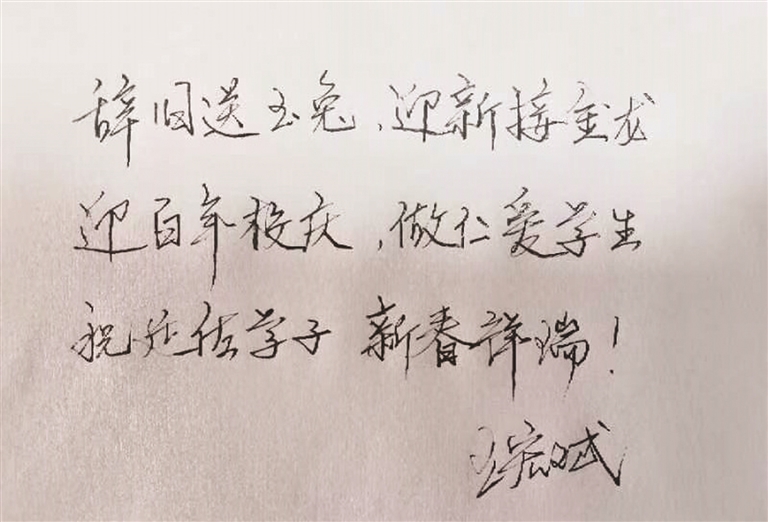 辞旧送玉兔,迎新接金龙
迎百年校庆,做仁爱学生
祝处估学子 新春祥瑞!
王宏斌